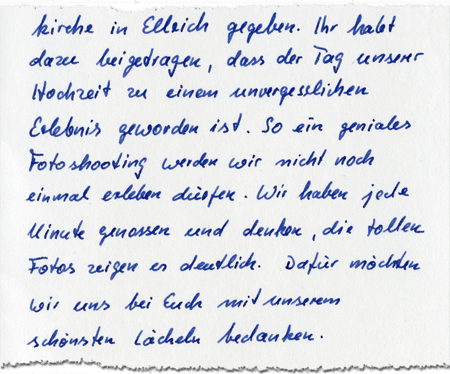 kirche in Ellrich gegeben. Ihr habt
dazu beigetragen, dass der Tag unserer
Hochzeit zu einem unvergesslichen
Erlebnis geworden ist. So ein geniales
Fotoshooting werden wir nicht noch
einmal erleben dürfen. Wir haben jede
Minute genossen und denken, die tollen
Fotos zeigen es deutlich. Dafür möchten
wir uns bei Euch mit unserem
schönsten Lächeln bedanken.